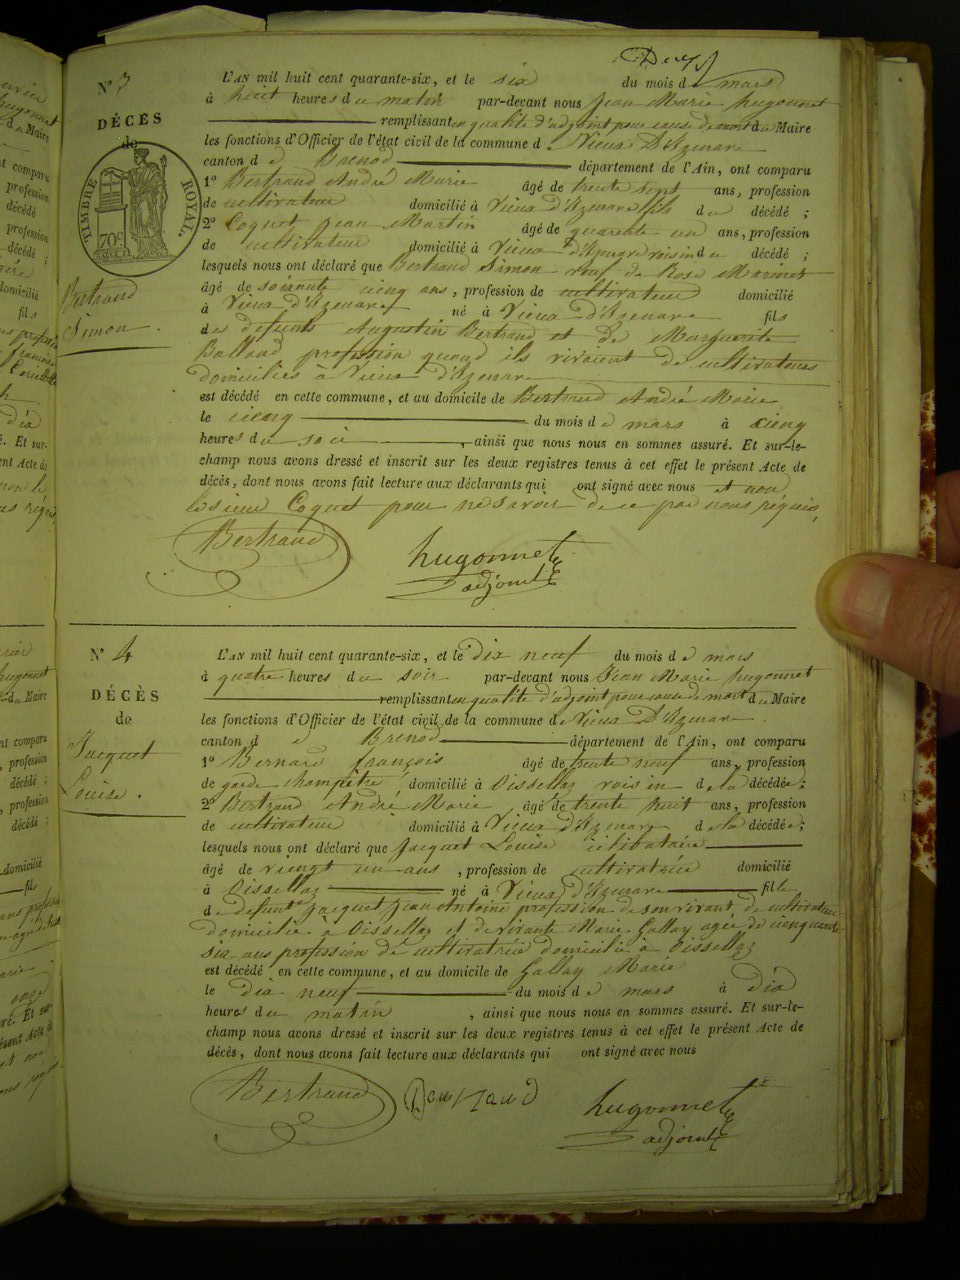 N° 3
DÉCÈS
de
TIMBRE ROYAL.
70c
Bertrand
Simon.
L'AN mil huit cent quarante-six, et le six du mois de mars
à huit heures du matin par-devant nous Jean Marie hugonnet
remplissant en qualité d'adjoint pour cause de mort du Maire
les fonctions d'Officier de l'état civil de la commune de Vieux D'Izenave
canton de Brenod département de l'Ain, ont comparu
1° Bertrand André Marie âgé de trente sept ans, profession
de cultivateur domicilié à Vieux d'Izenave fils du décédé ;
2° Coquet Jean Martin âgé de quarente un ans, profession
de cultivateur domicilié à Vieux d'Izenave voisin du décédé ;
lesquels nous ont déclaré que Bertrand Simon veuf de Rose Marinet
âgé de soixante cienq ans, profession de cultivateur domicilié
à Vieux d'Izenave né à Vieux d'Izenave fils
des defunts Augustin Bertrand et de Marguerite
Balland profession quand ils vivaient de cultivateurs
domiciliés à Vieux d'Izenave
est décédé en cette commune, et au domicile de Bertrand André Marie
le cienq du mois de mars à cienq
heures du soir, ainsi que nous nous en sommes assuré. Et sur-le-
champ nous avons dressé et inscrit sur les deux registres tenus à cet effet le présent Acte de
décès, dont nous avons fait lecture aux déclarants qui ont signé avec nous et non
le sieur Coquet pour ne savoir de ce par nous réquis,
Bertrand hugonnet
adjoint
N° 4
DÉCÈS
de
Jacquet
Louise.
L'AN mil huit cent quarante-six, et le dix neuf du mois de mars
à quatre heures du soir par-devant nous Jean Marie hugonnet
remplissant en qualité d'adjoint pour cause de mort du Maire
les fonctions d'Officier de l'état civil de la commune de Vieux D'Izenave
canton de Brenod département de l'Ain, ont comparu
1° Bernard françois âgé de trente neuf ans, profession
de garde champêtre domicilié à Oissellaz voisin de la décédée ;
2° Bertrand André Marie âgé de trente huit ans, profession
de cultivateur domicilié à Vieux d'Izenave de la décédée ;
lesquels nous ont déclaré que Jacquet Louise célibataire
âgé de viengt un ans, profession de cultivatrice domicilié
à Oissellaz né à Vieux d'Izenave fille
de defunt Jacquet Jean Antoine profession de son vivant de cultivateur
domicilié à Oissellaz et de vivante Marie Gallay agée de cienquante
six ans profession de cultivatrice domicilié à Oissellaz
est décédé en cette commune, et au domicile de Gallay Marie
le dix neuf du mois de mars à dix
heures du matin, ainsi que nous nous en sommes assuré. Et sur-le-
champ nous avons dressé et inscrit sur les deux registres tenus à cet effet le présent Acte de
décès, dont nous avons fait lecture aux déclarants qui ont signé avec nous
Bertrand hugonnet
adjoint